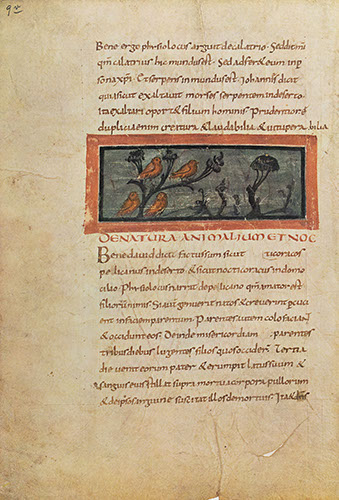 9v
Bene ergo phisiolocus arguit de calatrio. Sed dit mi
qm calatrius hic mundus est. Sed adfer & eum in p
sona xpi. Et serpens in mundus est. Iohannis dicit
quia sicut exaltauit morses serpentem in deserto
ita exaltari oport & filium hominis. Prudentiore
duplacia enim creatura & laudabilia & uituperabilia
DE NATURA ANIMALIUM ET NOC
Bene dauid dicit factus sum sicut ticoracos
pelicanus in deserto & sicut nocticoracus in domo
cilio. Phisiolocus narrit de pelicano qm amator est
filiorum nimis. Si aut genuerit natos & creuerint percuci
ent in faciem parentum. Parentes autem colofacian
& occidunt eos. Deinde misericordiam parentes
tribus diebus lugentes filios quos occider. Tertia
die uenit eorum pater & erumpit latus suum &
sanguis eius stillat supra mortua corpora pullorum
& de ipso sanguine suscitat illos de mortuis. Ita & dns